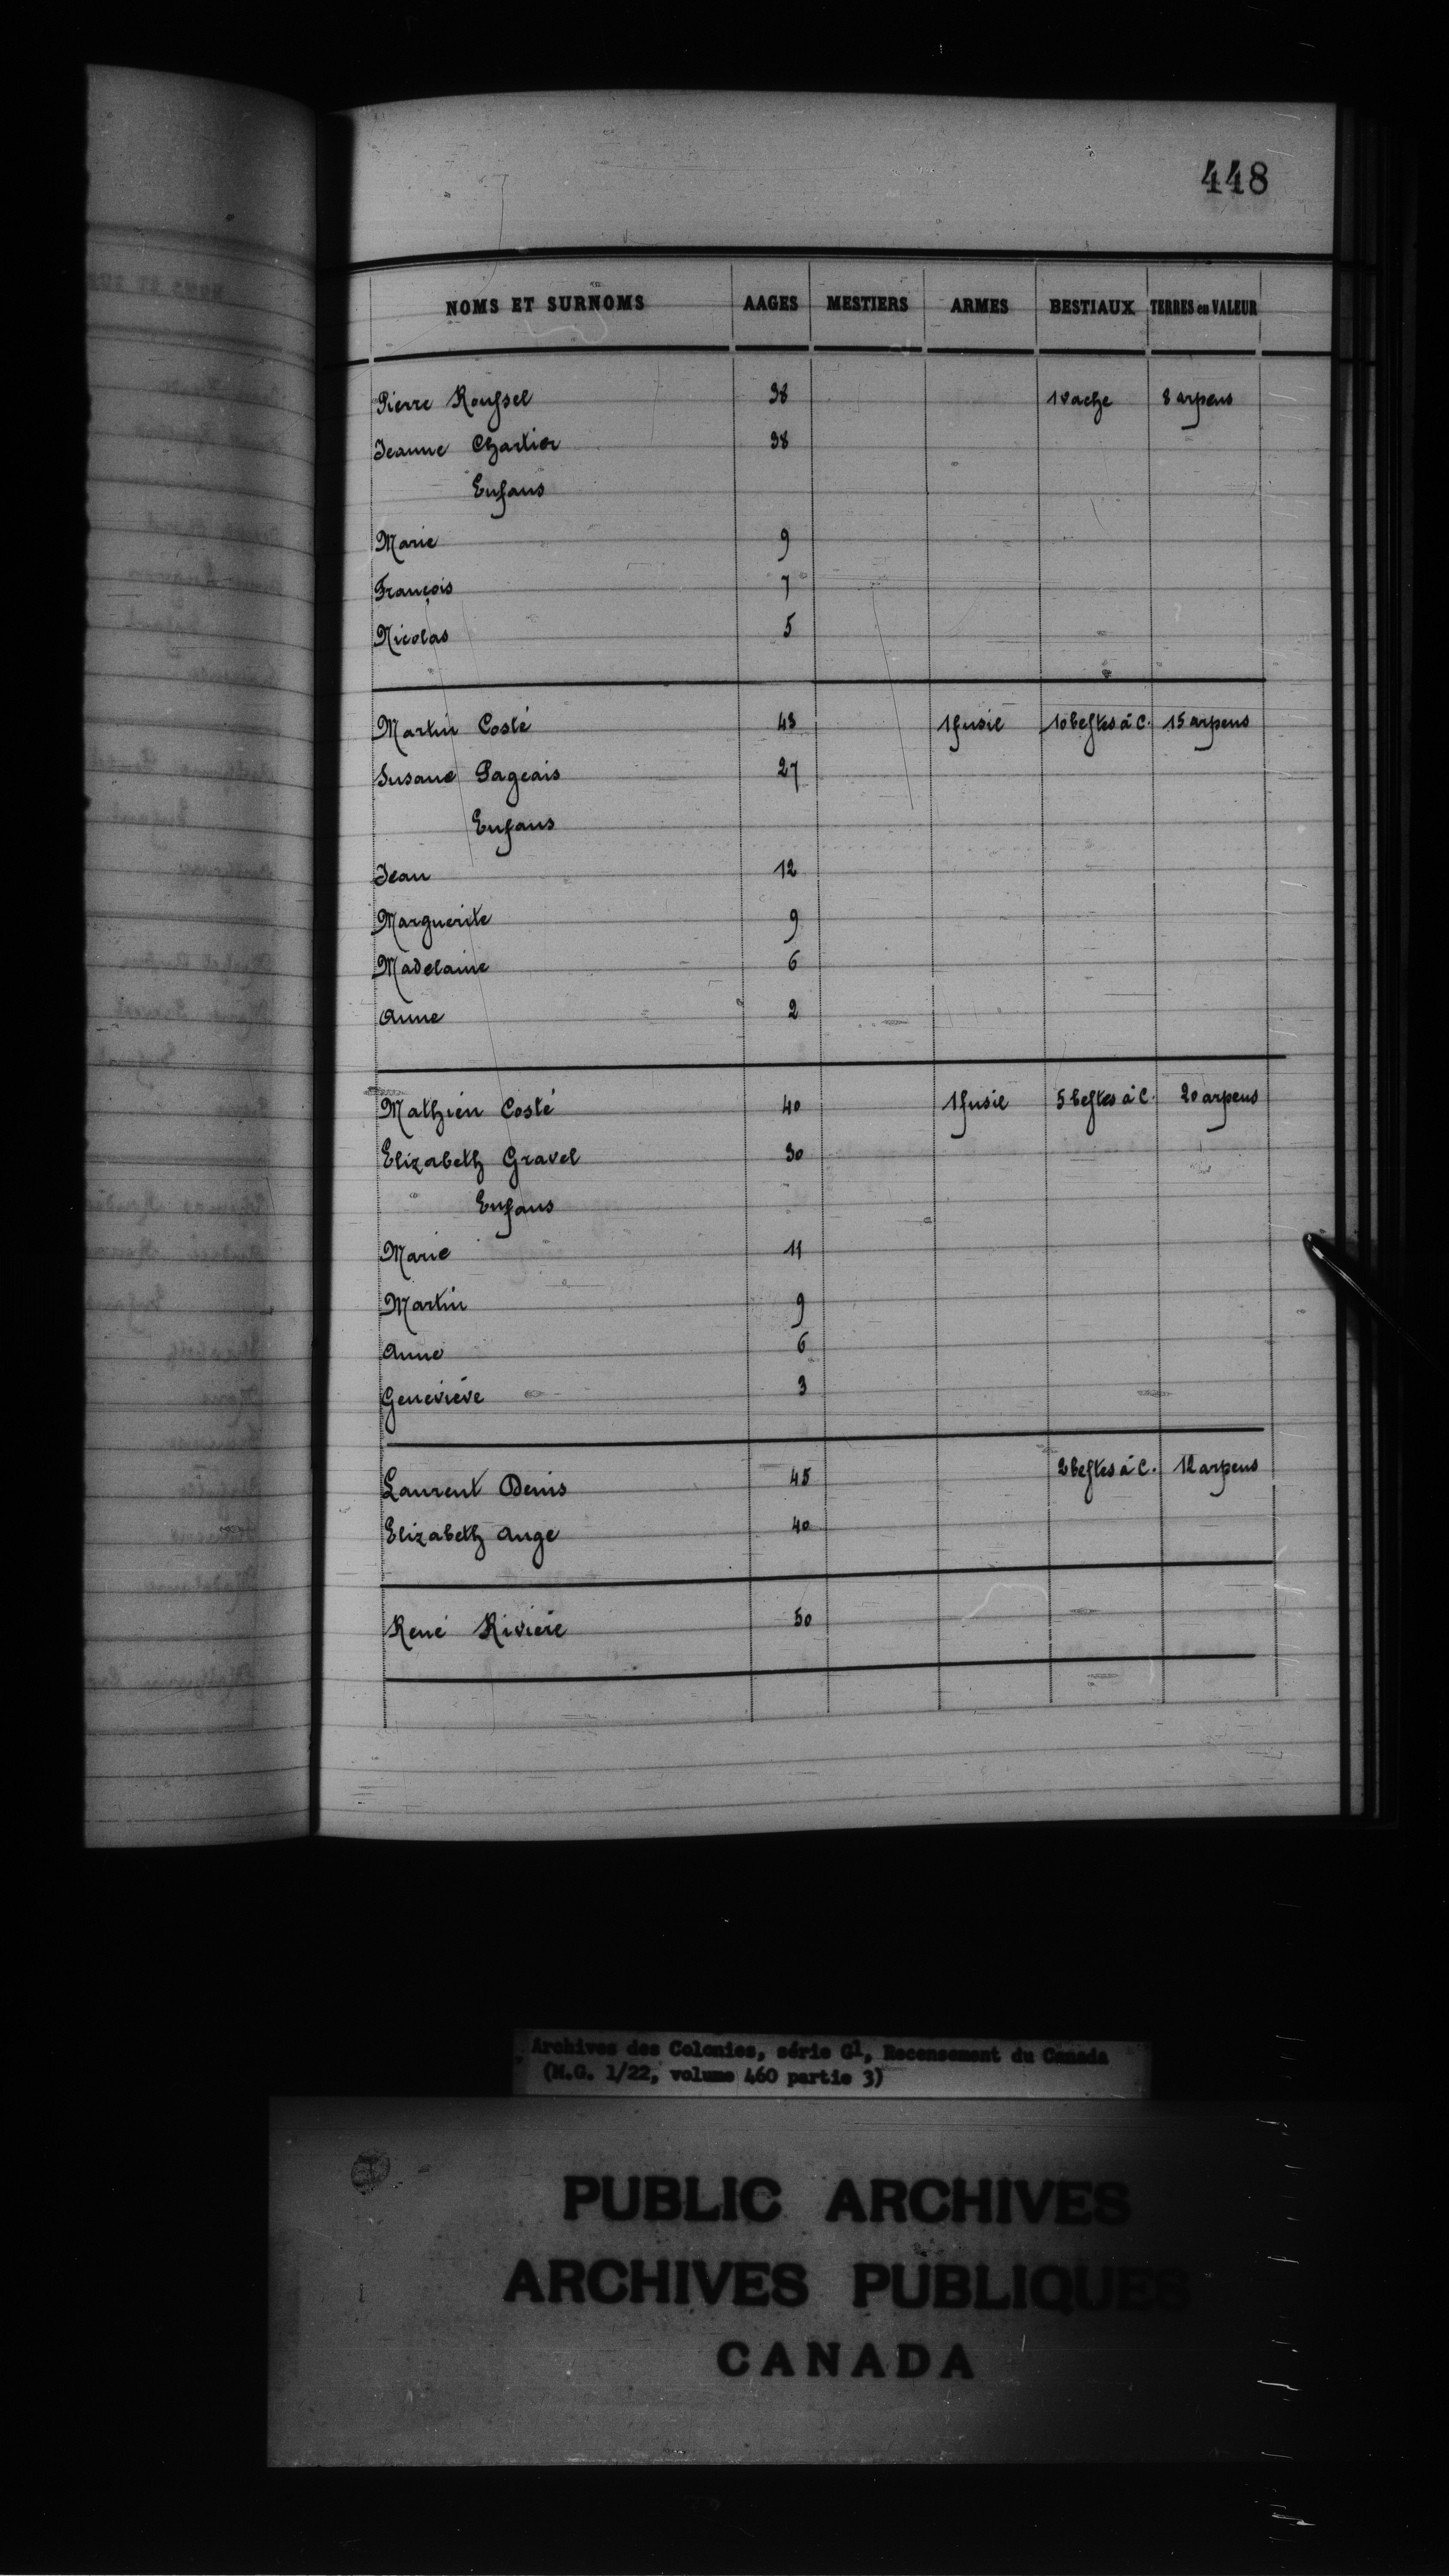 448
NOMS ET SURNOMS AAGES MESTIERS ARMES BESTIAUX TERRES en VALEUR
Pierre Rouſsel 38 1 vache 8 arpens
Jeanne Chartier 38
Enfans
Marie 9
François 7
Nicolas 5
Martin Costé 43 1 fusil 10 beſtes à C. 15 arpens
Susane Pageais 27
Enfans
Jean 12
Marguerite 9
Madelaine 6
Anne 2
Mathieu Costé 40 1 fusil 5 beſtes à C. 20 arpens
Elizabeth Gravel 30
Enfans
Marie 11
Martin 9
Anne 6
Geneviève 3
Laurent Denis 45 2 beſtes à C. 12 arpens
Elizabeth Ange 40
René Riviere 50
Archives des Colonies, série G1, Recensement du Canada
(M.G. 1/22, volume 460 partie 3)
PUBLIC ARCHIVES
ARCHIVES PUBLIQUES
CANADA